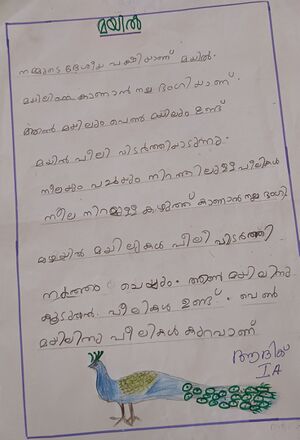 മയിൽ
നമ്മുടെ ദേശീയ പക്ഷിയാണ് മയിൽ.
മയിലിനെ കാണാൻ നല്ല ഭംഗിയാണ്.
ആൺ മയിലും പെൺ മയിലും ഉണ്ട്
മയിൽ പീലി വിടർത്തിയാടുന്നു.
നീലയും പച്ചയും നിറത്തിലുള്ള പീലികൾ
നീല നിറമുള്ള കഴുത്ത് കാണാൻ നല്ല ഭംഗി.
മഴയിൽ മയിലുകൾ പീലി വിടർത്തി
നൃത്തം ചെയ്യും. ആൺ മയിലിനു
കൂടുതൽ പീലികൾ ഉണ്ട്. പെൺ
മയിലിനു പീലികൾ കുറവാണ്
ആദിക്
I A